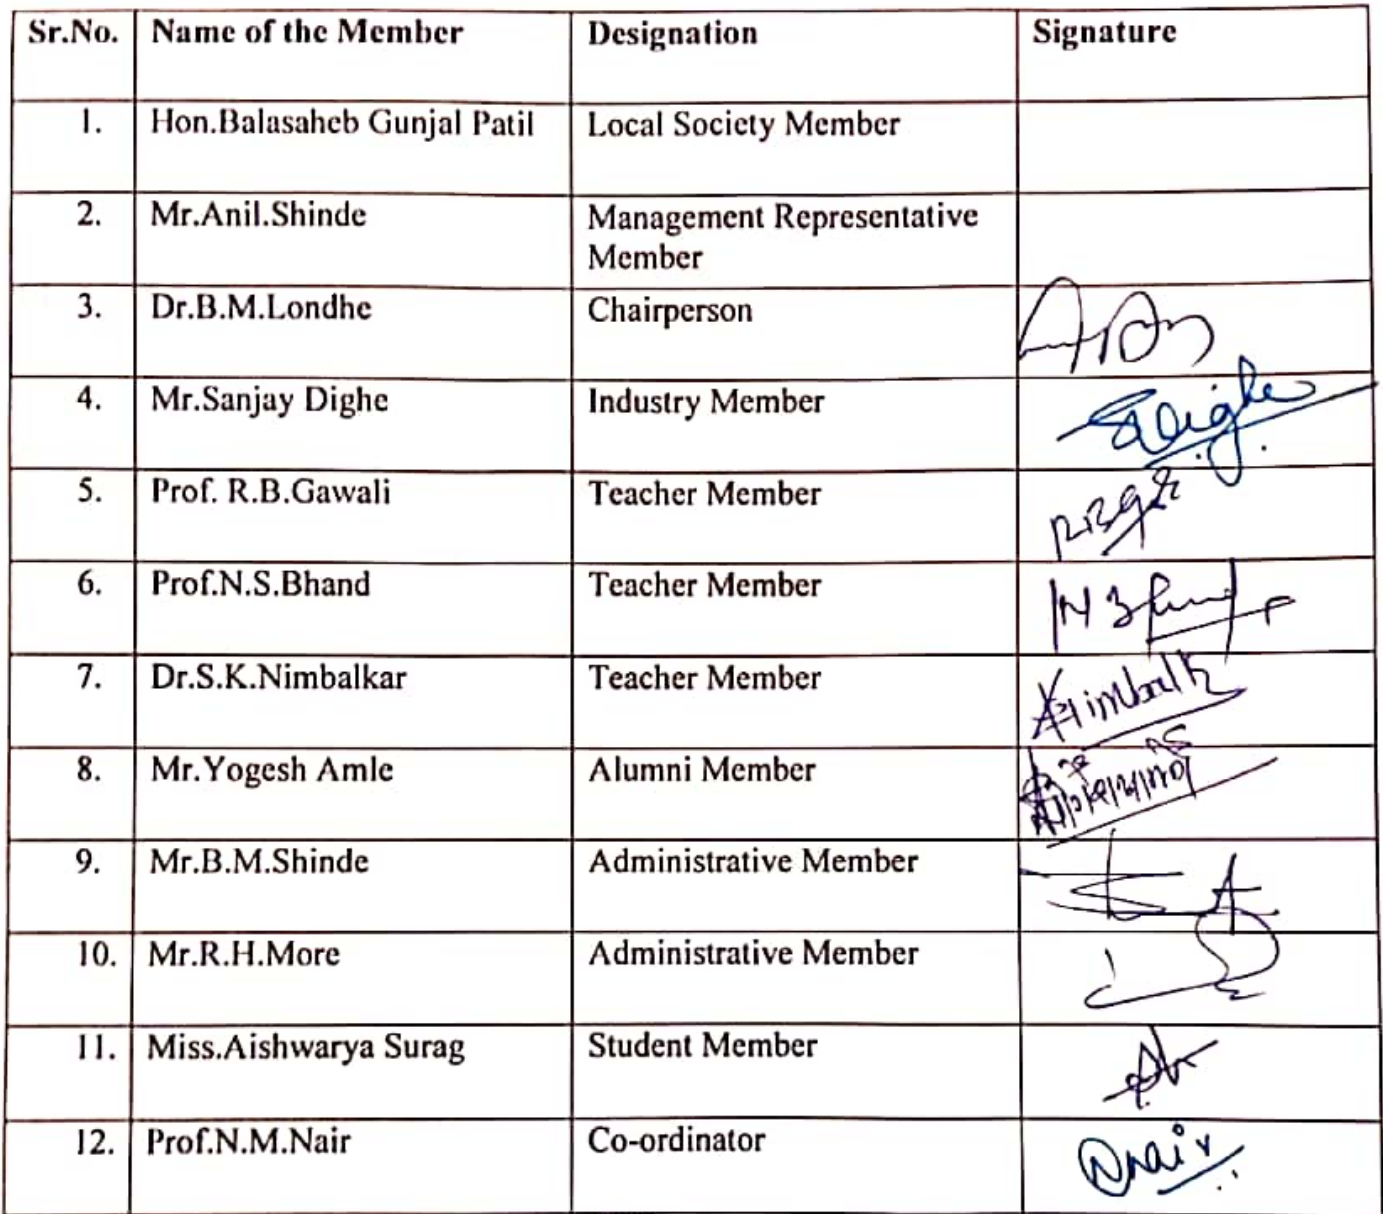 Sr.No. Name of the Member Designation Signature
1. Hon.Balasaheb Gunjal Patil Local Society Member
2. Mr.Anil.Shinde Management Representative
Member
3. Dr.B.M.Londhe Chairperson
4. Mr.Sanjay Dighe Industry Member Dighe
5. Prof. R.B.Gawali Teacher Member
6. Prof.N.S.Bhand Teacher Member
7. Dr.S.K.Nimbalkar Teacher Member
8. Mr.Yogesh Amle Alumni Member
9. Mr.B.M.Shinde Administrative Member
10. Mr.R.H.More Administrative Member
11. Miss.Aishwarya Surag Student Member
12. Prof.N.M.Nair Co-ordinator Nair